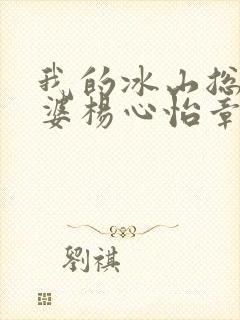 我的冰山总
婆杨心怡章
劉祺